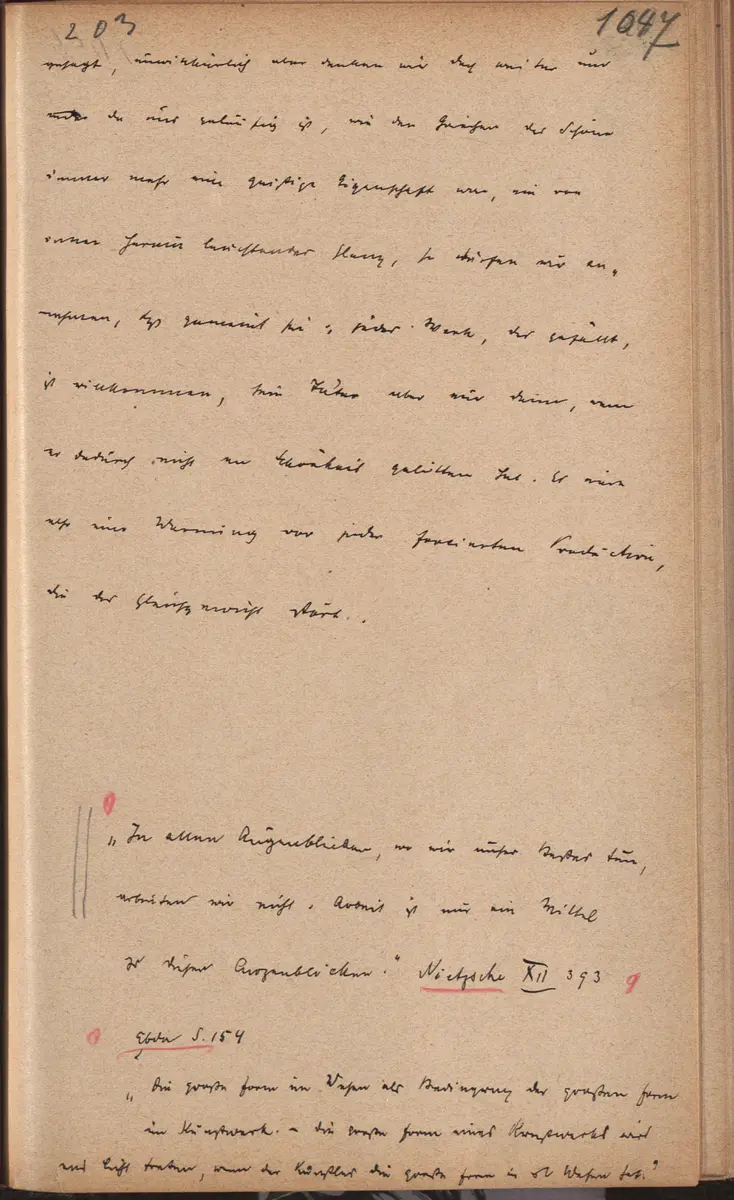 203
1047
gesagt, unwillkürlich aber denken wir doch weiter und
da uns geläufig ist, wie den Griechen das Schöne
immer mehr eine geistige Eigenschaft war, ein von
innen heraus leuchtender Glanz, so dürfen wir an„
nehmen, dass gemeint sei „ jedes Werk, das gefällt,
ist willkommen, sein Autor aber nur dann, wenn
er dadurch nicht an Schönheit gelitten hat. Es wäre
also eine Warnung vor jeder forcierten Production,
die das Gleichgewicht stört.
„In allen Augenblicken, wo wir unser Bestes tun,
arbeiten wir nicht. Arbeit ist nur ein Mittel
zu diesen Augenblicken." Nietzsche XII 393
Ebda S. 154
„Die große Form im Wesen als Bedingung der großen Form
im Kunstwerk. – die große Form eines Kunstwerks wird
ans Licht treten, wenn der Künstler die große Form in s. Wesen hat."